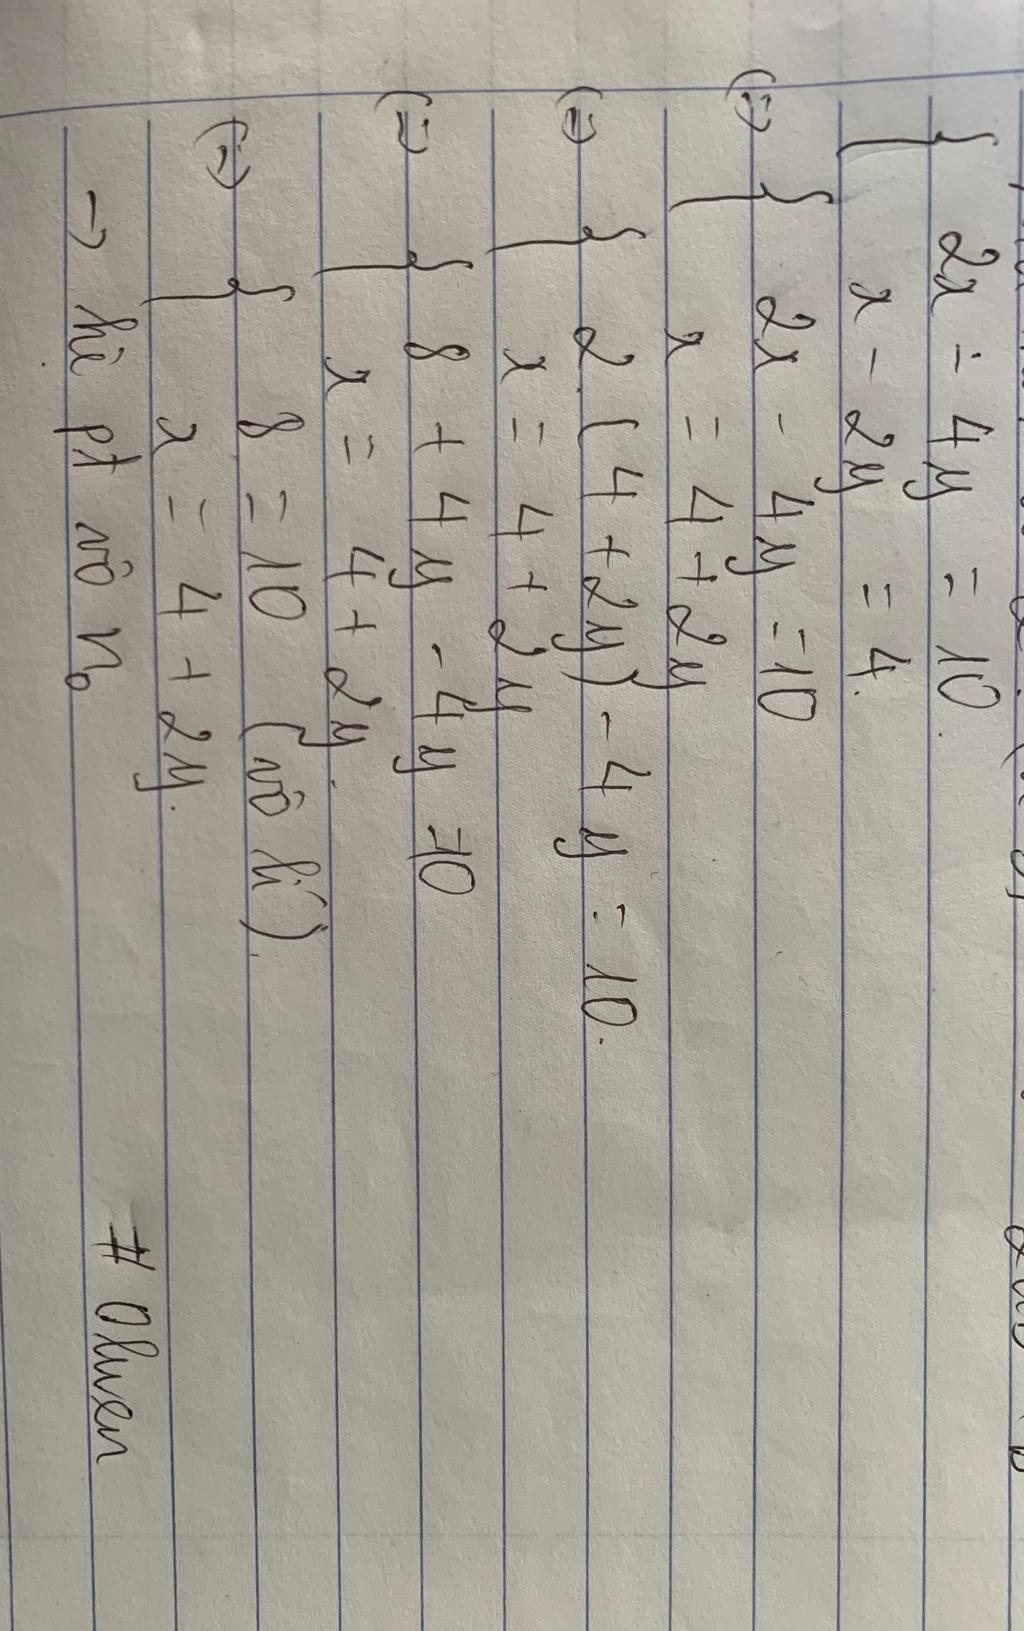 { 2x - 4y = 10.
x - 2y = 4.
(=) { 2x - 4y = 10
x = 4 + 2y
(=) { 2. (4 + 2y) - 4y = 10.
x = 4 + 2y
(=) { 8 + 4y - 4y = 10
x = 4 + 2y.
(=) { 8 = 10 (vô lí).
x = 4 + 2y.
→ hê pt vô n₀
# Olwen